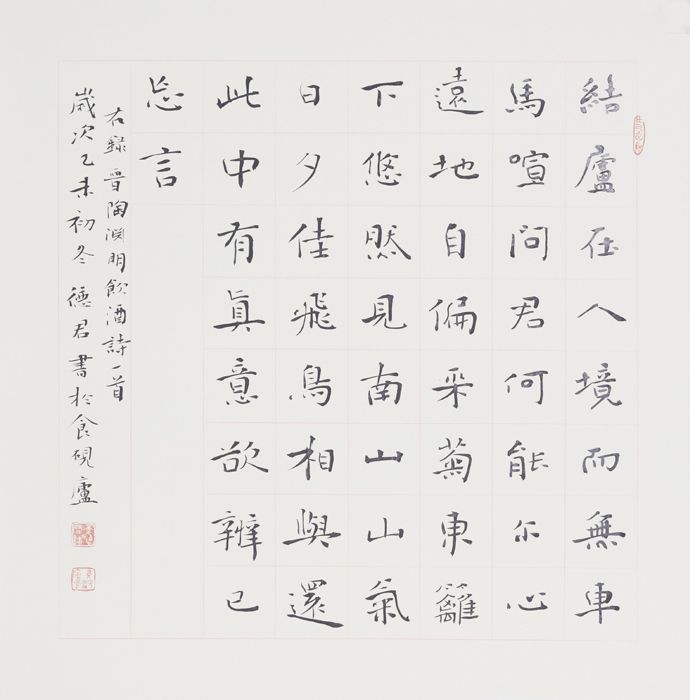 結廬在人境而無車
馬喧問君何能尒心
遠地自偏采菊東籬
下悠然見南山山氣
日夕佳飛鳥相與還
此中有真意欲辨已
忘言
右録晋陶淵明飲酒詩一首
歲次乙未初冬德君書於食硯廬